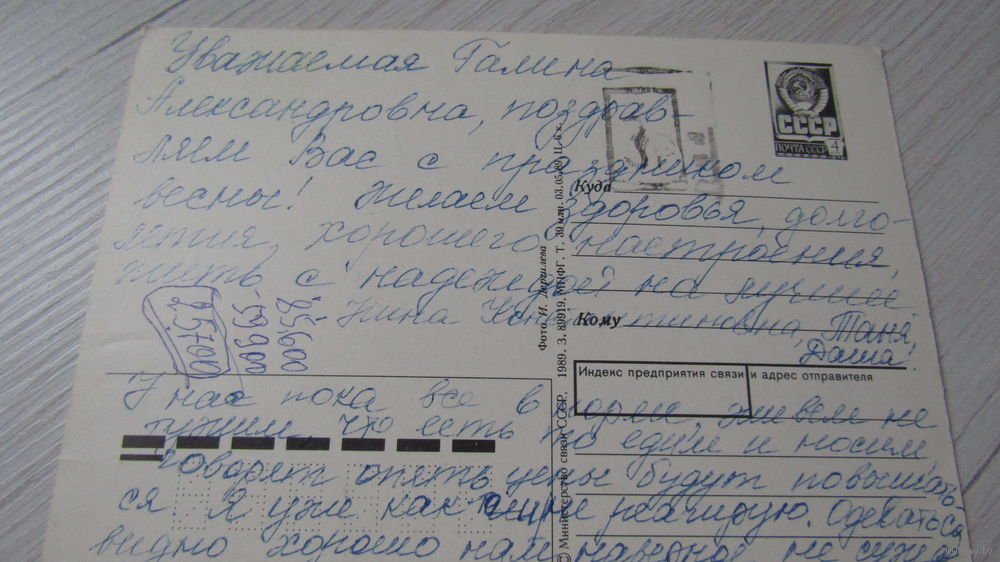 Уважаемая Галина
Александровна, поздрав-
ляем Вас с праздником
весны! Желаем здоровья, долго-
летия, хорошего настроения,
жить с надеждой на лучшее
Нина Константиновна, Таня,
Даша!
У нас пока все в норме, живем не
тужим, что есть то едим и носим,
говорят опять цены будут повышать-
ся Я уже как реагирую. Одеваться
видно хорошо нам наверное не суж
СССР
ПОЧТА СССР 4
Куда
Кому
Индекс предприятия связи и адрес отправителя
Фото. И. Дергилева
© Министерство связи СССР. 1989. З. 89919. МПФГ. Т. 39 млн. 03.05.89. Ц. 4 к.
85.600
-59.900
2.5700